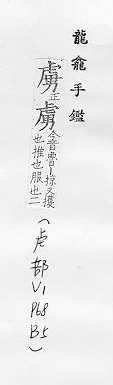 龍龕手鑑
虜正虜今音魯丨掠又獲
也推也服也二
(虍部V1
P68
B5)